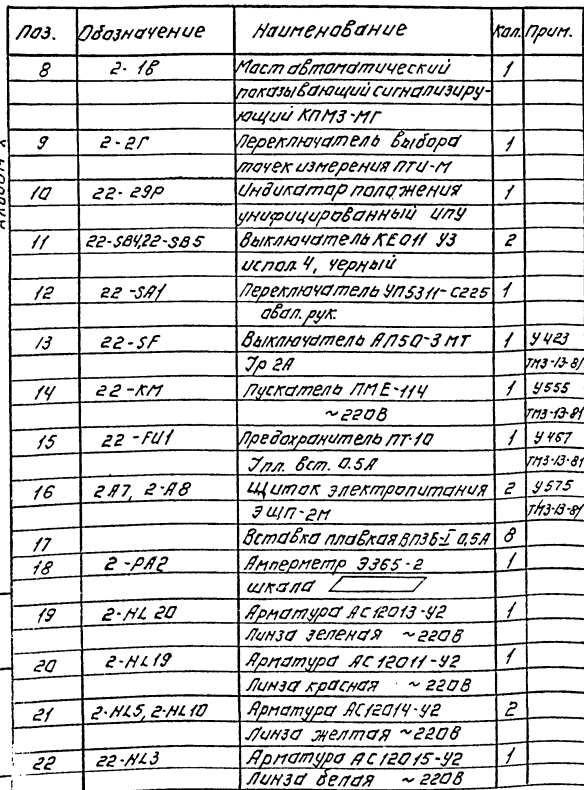 Поз. Обозначение Наименование Кол. Прим.
8 2-1в Мост автоматический 1
показывающий сигнализиру-
ющий КПМЗ-МГ
9 2-2г Переключатель выбора 1
точек измерения ПТИ-М
10 22-29р Индикатор положения 1
унифицированный ИПУ
11 22-SB4,22-SB5 Выключатель КЕ011 У3 2
испол. 4, черный
12 22-SA1 Переключатель УП5311-С225 1
овал. рук.
13 22-SF Выключатель АП50-3 МТ 1 У423
Iр 2А ТМ3-13-81
14 22-КМ Пускатель ПМЕ-114 1 У555
~220В ТМ3-13-81
15 22-FU1 Предохранитель ПТ-10 1 У467
Iпл. вст. 0.5А ТМ3-13-81
16 2А7, 2-А8 Щиток электропитания 2 У575
ЭЩП-2М ТМ3-13-81
17 Вставка плавкая ВП3Б-I 0,5А 8
18 2-РА2 Амперметр Э365-2 1
шкала
19 2-HL20 Арматура АС12013-У2 1
Линза зеленая ~220В
20 2-HL19 Арматура АС12011-У2 1
Линза красная ~220В
21 2-HL5, 2-HL10 Арматура АС12014-У2 2
Линза желтая ~220В
22 22-HL3 Арматура АС12015-У2 1
Линза белая ~220В
Альбом X